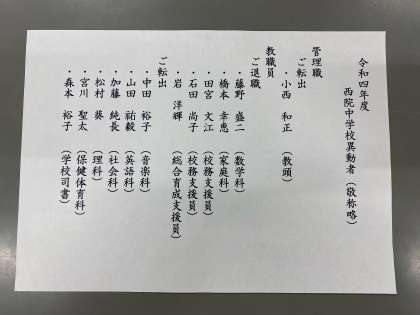 令和四年度
西院中学校異動者（敬称略）
管理職
ご転出
・小西 和正（教頭）
教職員
ご退職
・藤野 盛二（数学科）
・橋本 幸恵（家庭科）
・田宮 文江（校務支援員）
・石田 尚子（校務支援員）
・岩 洋輝（総合育成支援員）
ご転出
・中田 裕子（音楽科）
・山田 祐毅（英語科）
・加藤 純長（社会科）
・松村 葵（理科）
・宮川 聖太（保健体育科）
・森本 裕子（学校司書）